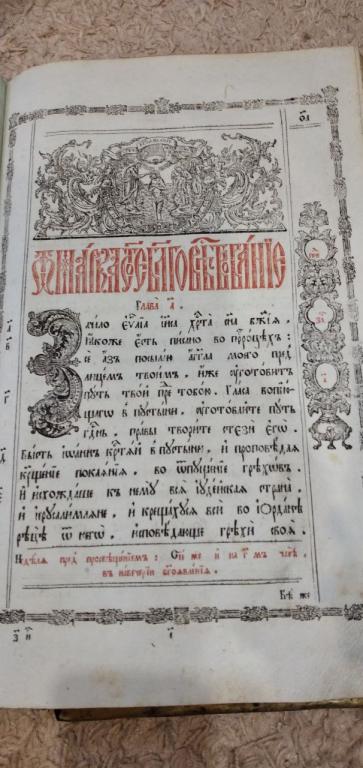 ѿ ма́рка ст҃о́е бл҃говѣствова́нїе
Глава̀ а҃.
Зача́ло є҆ѵⷢ҇лїа і҆и҃са хрⷭ҇та̀ сн҃а бж҃їѧ .
Ꙗ҆́коже є҆́сть пи́сано во прⷪ҇ро́цѣхъ :
се а҆́зъ посыла́ю а҆́гг҃ла моего̀ пред̾
лице́мъ твои́мъ , и҆́же ᲂу҆гото́витъ
пꙋ́ть тво́й пре́д̾ тобо́ю . Гла́съ вопїю́-
щагѡ в̾ пꙋсты́ни , ᲂу҆гото́вайте пꙋ́ть
гдⷭ҇нь , пра́вы твори́те стєзѝ є҆гѡ̀ .
Бы́сть і҆ѡа́ннъ крⷭ҇тѧ́й в̾ пꙋсты́ни , и҆ проповѣ́даѧ
кр҃ще́нїе покаѧ́нїѧ . во ѿпꙋще́нїе грѣхѡ́въ .
И҆ и҆схожда́ше къ немꙋ̀ всѧ̀ і҆ꙋде́йская страна̀ ,
и҆ і҆ерⷭ҇ли́млѧне . и҆ креща́хꙋсѧ всѝ во і҆ѻрда́нѣ
рѣцѣ̀ ѿ негѡ̀ , и҆сповѣ́дающе грѣхѝ своѧ̀ .
Недѣ́лѧ пред̾ просвѣще́нїемъ : Сїе́ же и҆ на г҃-мъ часѣ̀ ,
въ наве́черїи бг҃оѧвле́нїѧ .
Бѣ́ же